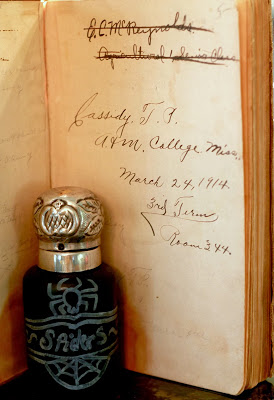 E.C. McReynolds
Agricultural
Cassidy, T. P.
A&M. College Miss.,
March 24, 1914
3rd Term
Room 344
Spiders